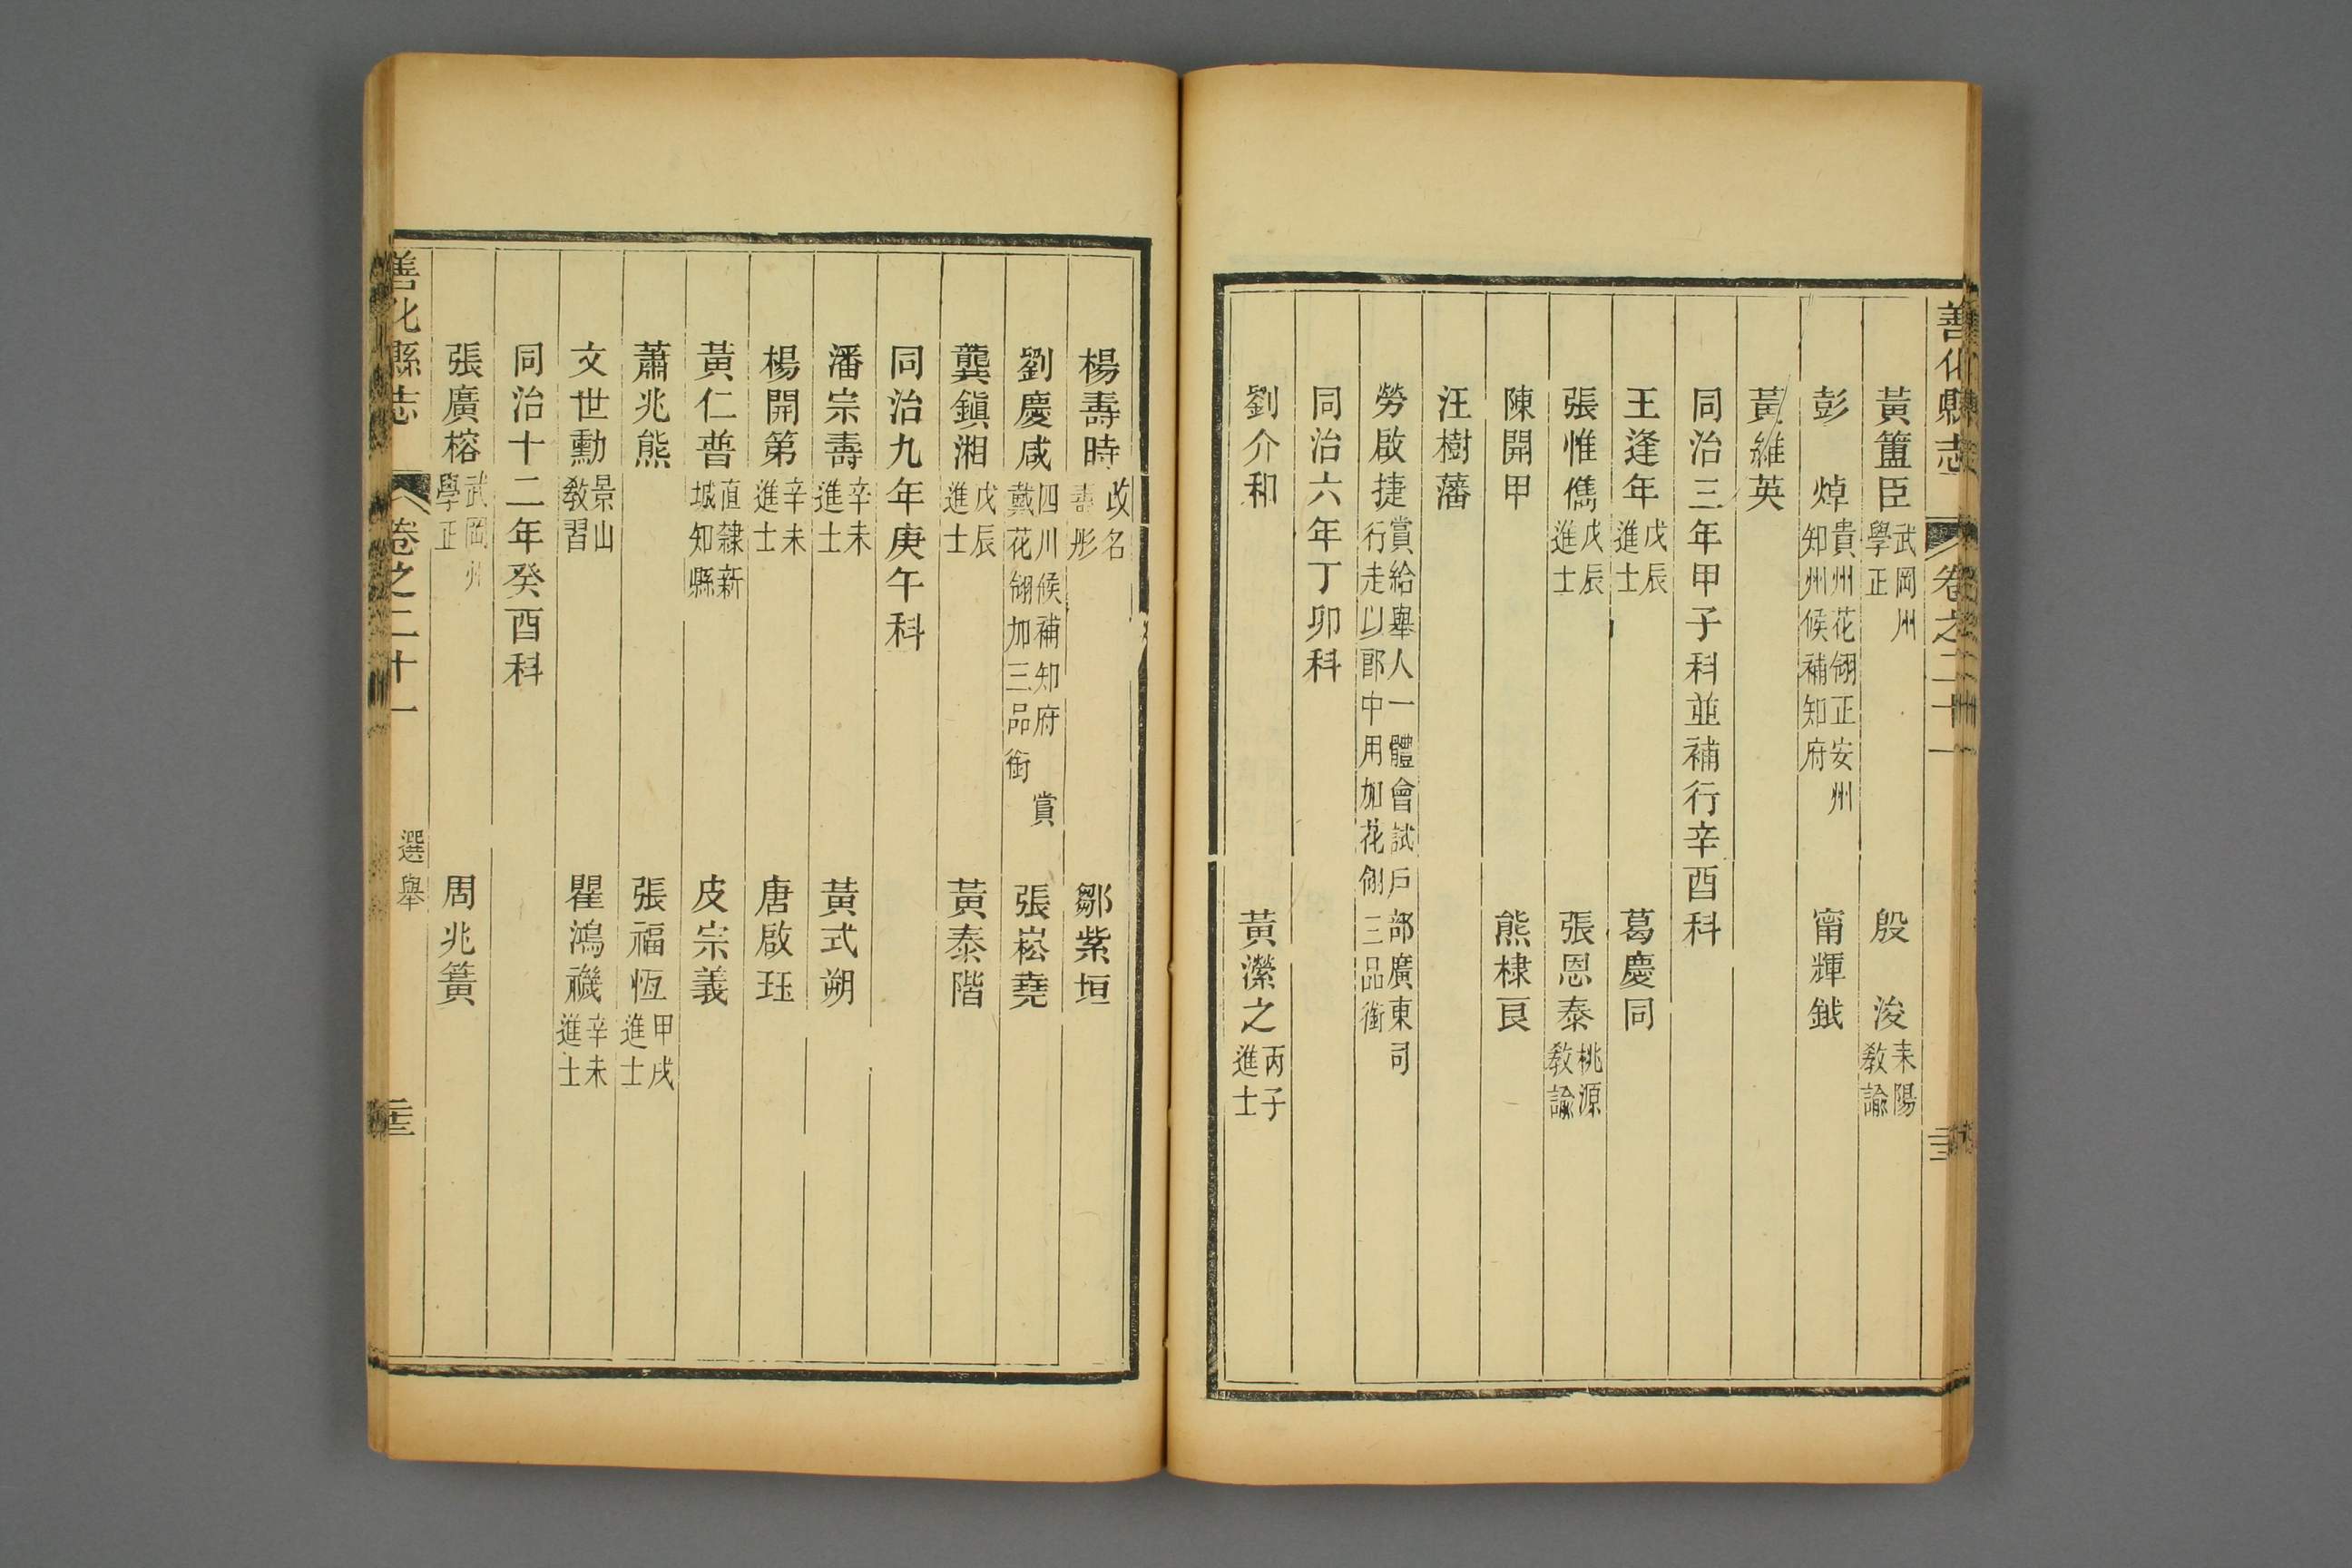 善化縣志 卷之二十一
黃簠臣 武岡州學正 殷浚 耒陽教諭
彭焯 貴州花翎正安州知州候補知府 甯輝鉞
黃維英
同治三年甲子科並補行辛酉科
王逢年 戊辰進士 葛慶同
張惟儁 戊辰進士 張恩泰 桃源教諭
陳開甲 熊棣良
汪樹藩
勞啟捷 賞給舉人一體會試戶部廣東司行走以郎中用加花翎三品銜
同治六年丁卯科
劉介和 黃濚之 丙子進士
楊壽時 改名壽彤 鄒紫垣
劉慶咸 四川候補知府賞戴花翎加三品銜 張崧堯
龔鎮湘 戊辰進士 黃泰階
同治九年庚午科
潘宗壽 辛未進士 黃式朔
楊開第 辛未進士 唐啟珏
黃仁普 直隸新城知縣 皮宗義
蕭兆熊 張福恆 甲戌進士
文世勳 景山教習 瞿鴻禨 辛未進士
同治十二年癸酉科
張廣榕 武岡州學正 周兆簧
善化縣志 卷之二十一 選舉